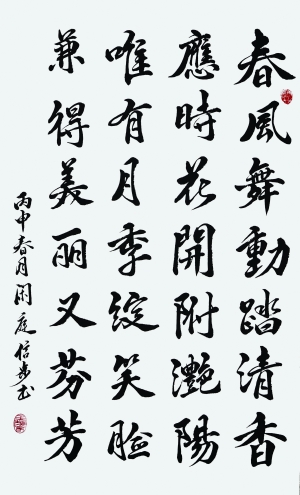 春風舞動踏清香
應時花開附灔陽
唯有月季綻笑臉
兼得美丽又芬芳
丙申春月闲庭信步書